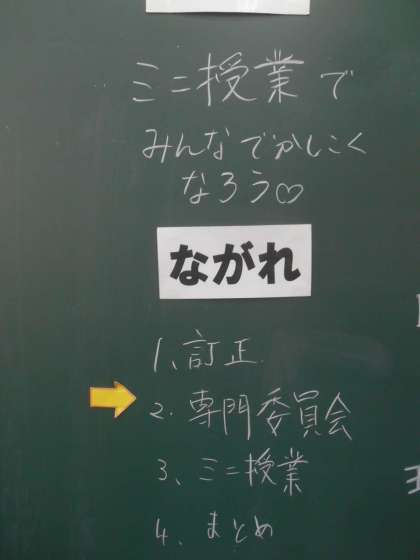 ミニ授業で
みんなでかしこく
なろう♡
ながれ
1、訂正
2、専門委員会
3、ミニ授業
4、まとめ